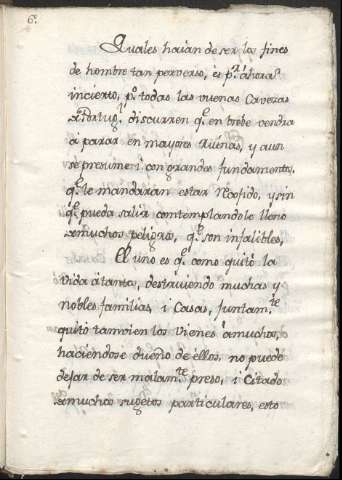 6.
Quales haian de ser los fines
de hombre tan perverso, es p.r áhora
incierto, p.o todas las vuenas Cavezas
de Portug.l discurren q.e en brebe vendra
á parar en mayores Ruinas, y aun
se presume i con grandes fundamentos,
q.e le mandaran estar Recosido, y sin
q.e pueda salir contemplandole lleno
de muchos peligros, q.e son infalibles,
El uno es q.e como quitó la
vida átantos, destruiendo muchas y
nobles familias, i Casas, juntam.te
quitó tamvien los vienes ámuchos,
haciendose dueño de ellos, no puede
dejar de ser malam.te preso, i Citado
de muchos sugetos particulares, esto